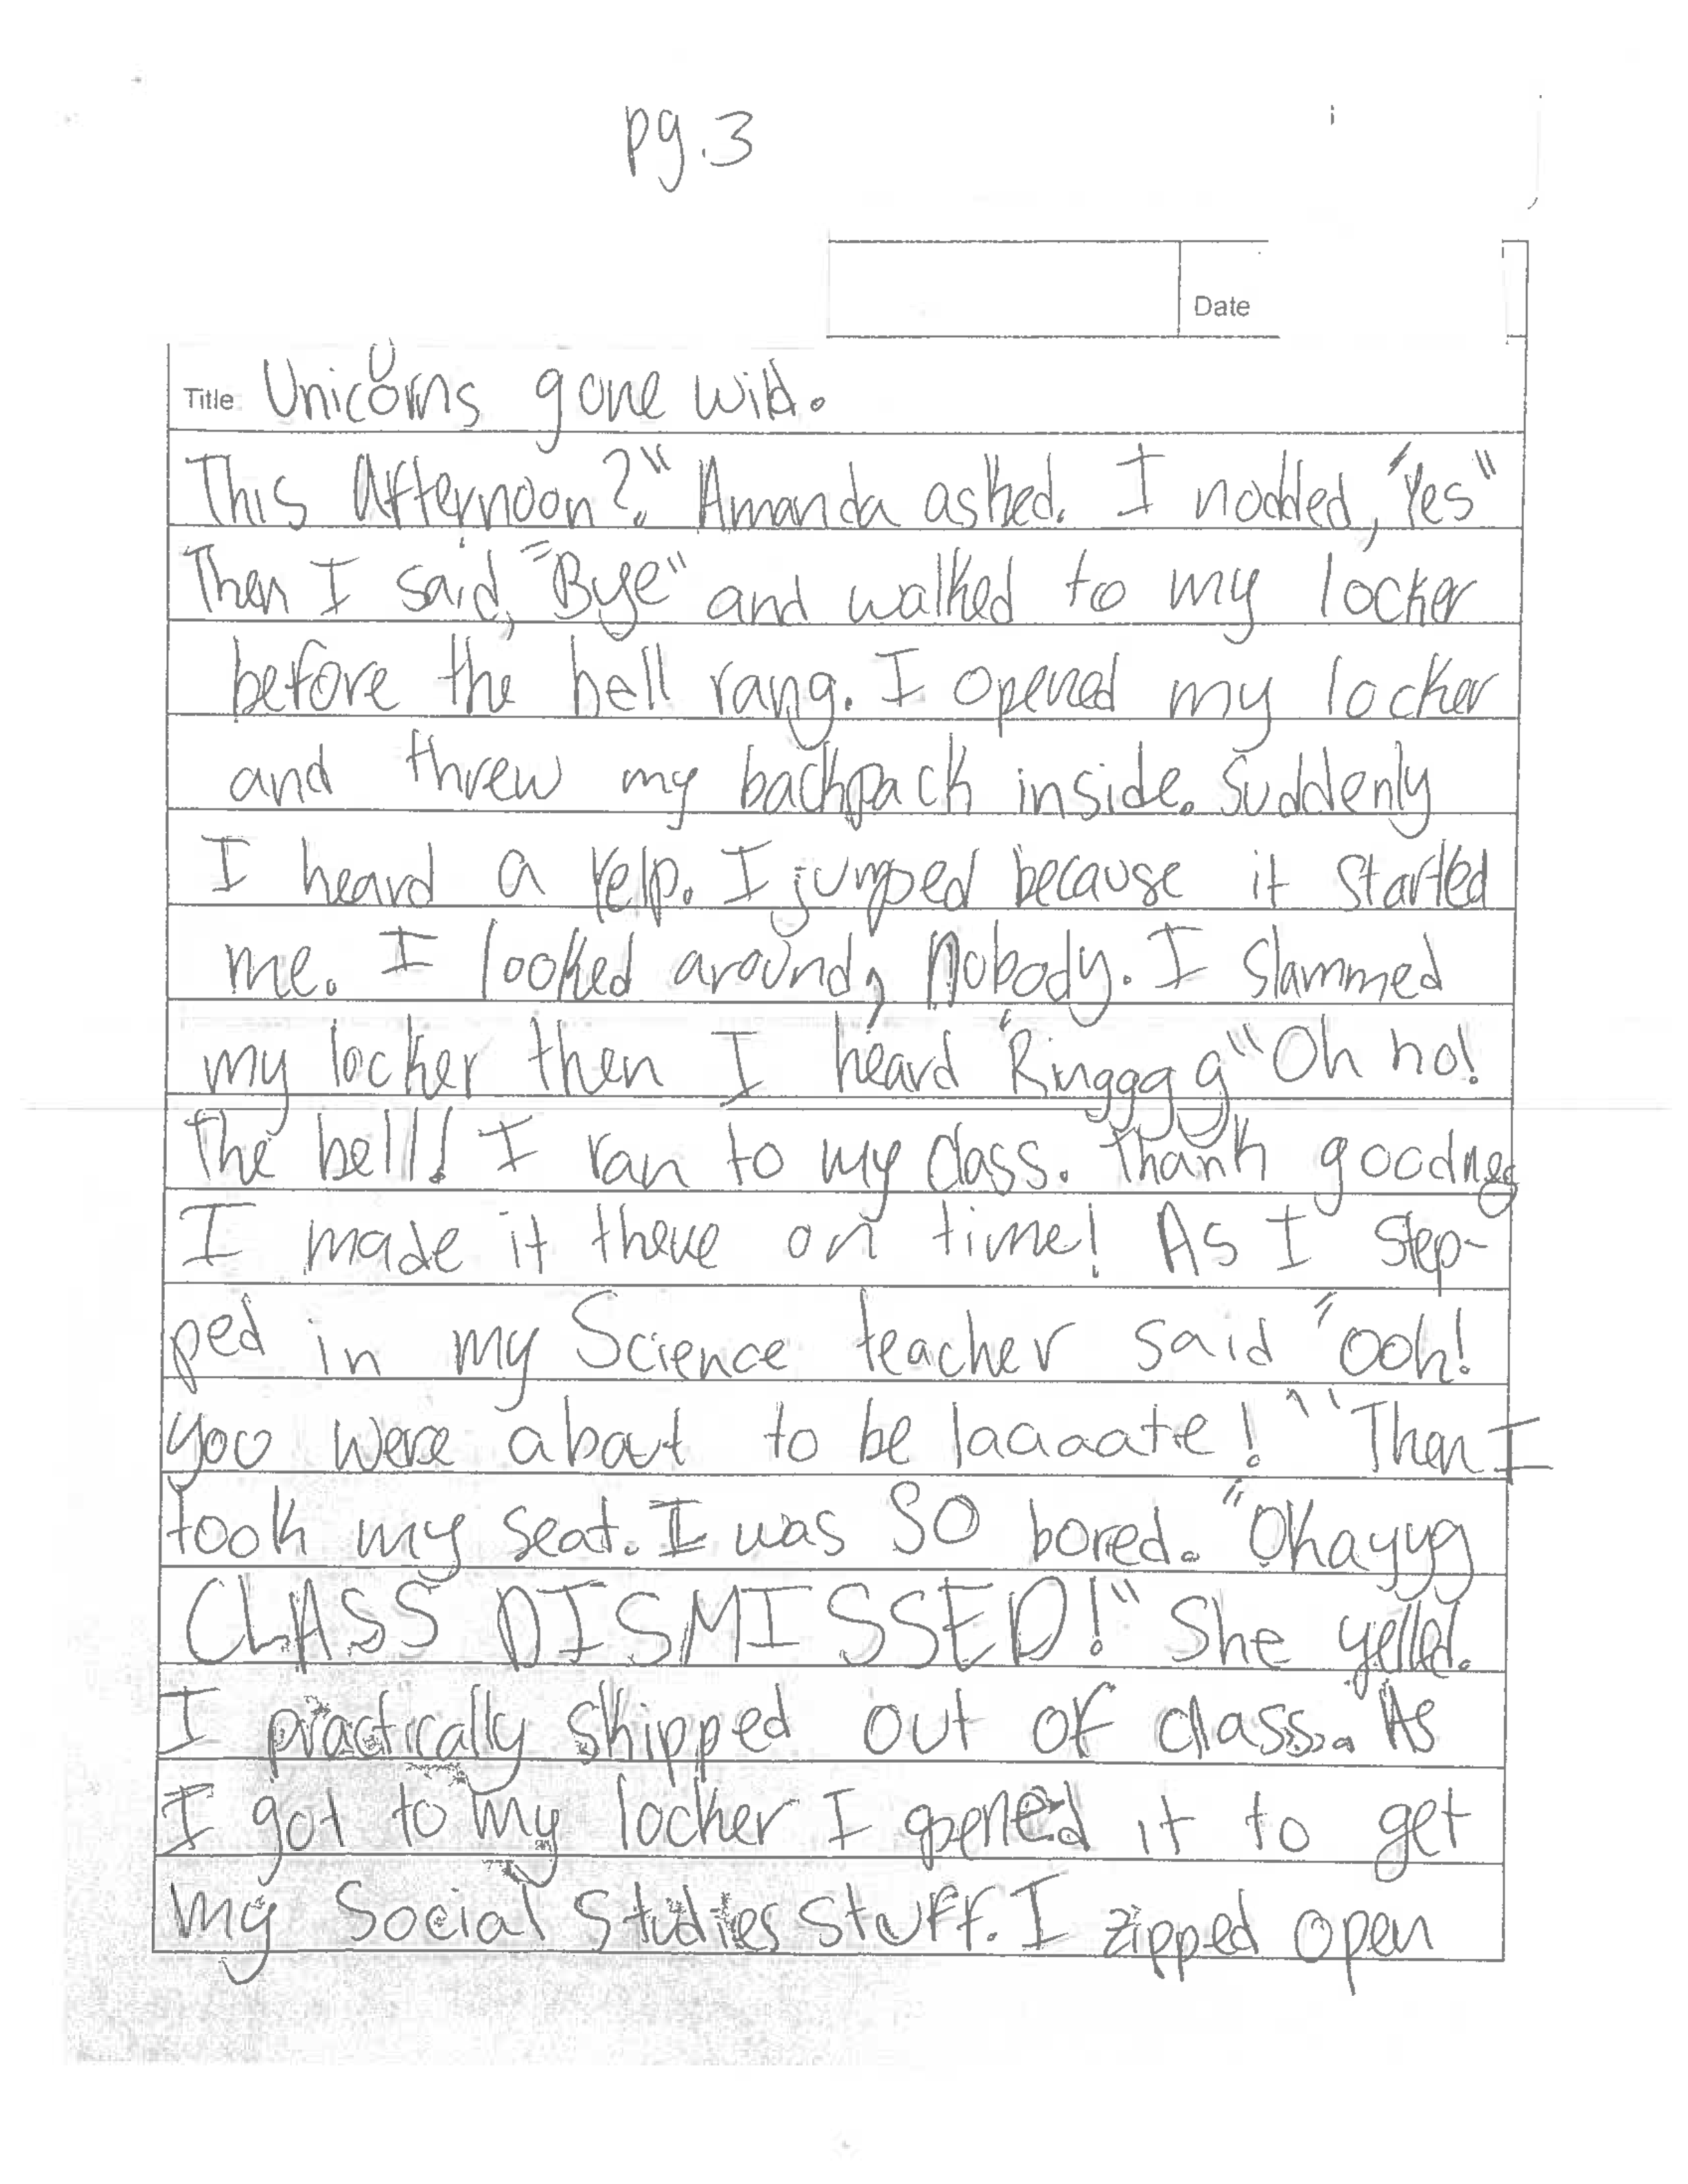 pg.3
Date
Title Unicorns gone wild.
This Afternoon?" Amanda asked. I nodded, "Yes"
Then I said, "Bye" and walked to my locker
before the bell rang. I opened my locker
and threw my backpack inside. Suddenly
I heard a yelp. I jumped because it startled
me. I looked around, Nobody. I slammed
my locker then I heard "Ringggg" Oh no!
The bell! I ran to my class. Thank goodnes
I made it there on time! As I step-
ped in my Science teacher said "ooh!
you were about to be laaaate!" Then I
took my seat. I was SO bored. "Okayyy
CLASS DISMISSED!" She yelled.
I practically skipped out of class. As
I got to my locker I opened it to get
my Social Studies stuff. I zipped open